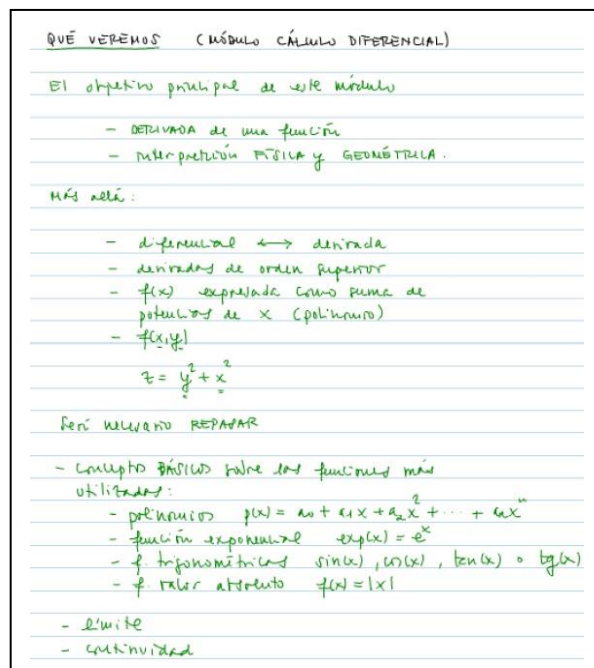 QUÉ VEREMOS (MÓDULO CÁLCULO DIFERENCIAL)
El objetivo principal de este módulo
- DERIVADA de una función
- interpretación FÍSICA y GEOMÉTRICA.
Más allá:
- diferencial ⟷ derivada
- derivadas de orden superior
- f(x) expresada como suma de
potencias de x (polinomio)
- f(x,y)
z = y² + x²
Será necesario REPASAR
- conceptos BÁSICOS sobre las funciones más
utilizadas:
- polinomios p(x) = a₀ + a₁x + a₂x² + ... + aₙxⁿ
- función exponencial exp(x) = eˣ
- f. trigonométricas sin(x), cos(x), tan(x) o tg(x)
- f. valor absoluto f(x) = |x|
- límite
- continuidad